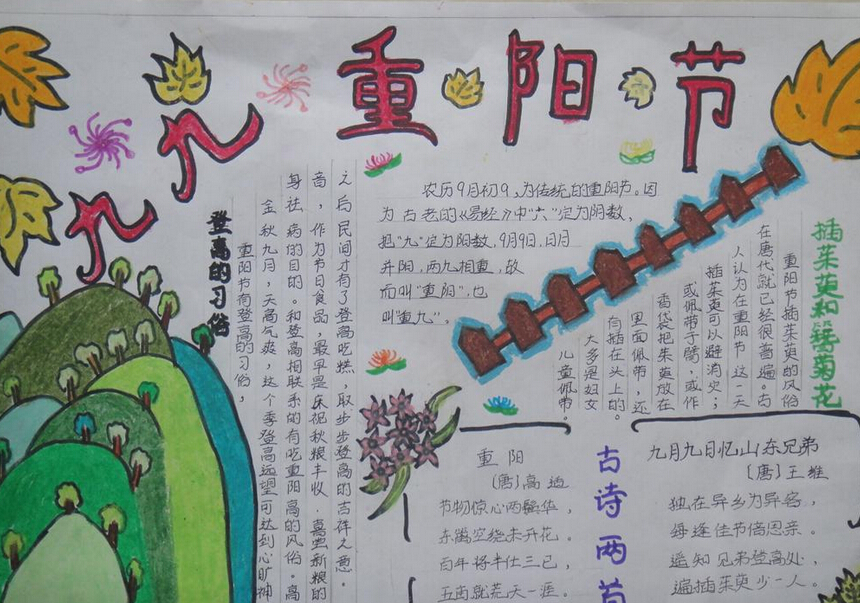 九九重阳节
登高的习俗
重阳节有登高的习俗,
金秋九月,天高气爽,这个季登高远望可达到心旷神
身祛病的目的。和登高相联系的有吃重阳高的风俗。高
音,作为节日食品,最早是庆祝秋粮丰收.喜尝新粮的
之后民间才有了登高吃糕,取步步登高的吉祥之意。
农历9月初9,为传统的重阳节。因
为古老的《易经》中"六"定为阴数,
把"九"定为阳数,9月9日,日月
并阳,两九相重,故
而叫"重阳",也
叫"重九"。
插茱萸和簪菊花
重阳节插茱萸的风俗
在唐代就已经很普遍。古
人认为在重阳节这一天
插茱萸可以避消灾;
或佩带于臂,或作
香袋把茱萸放在
里面佩带,还
有插在头上的。
大多是妇女
儿童佩带。
重阳
〔唐〕高适
节物惊心两鬓华,
东篱空绕未开花。
百年将半仕三已,
五亩就荒天一涯。
古诗两首
九月九日忆山东兄弟
〔唐〕王维
独在异乡为异客,
每逢佳节倍思亲。
遥知兄弟登高处,
遍插茱萸少一人。